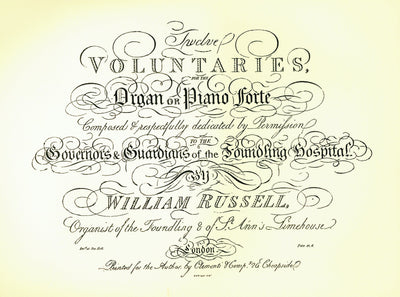 Twelve
VOLUNTARIES,
FOR THE
Organ OR Piano Forte
Composed & respectfully dedicated by Permission
TO THE
Governors & Guardians of the Foundling Hospital.
By
WILLIAM RUSSELL,
Organist of the Foundling & of St. Ann's Limehouse
London
Printed for the Author, by Clementi & Comp. 26 Cheapside